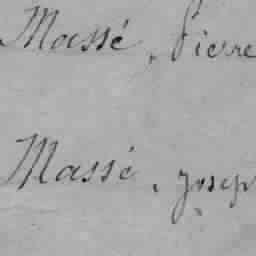 Massé, Pierre
Massé, Josep